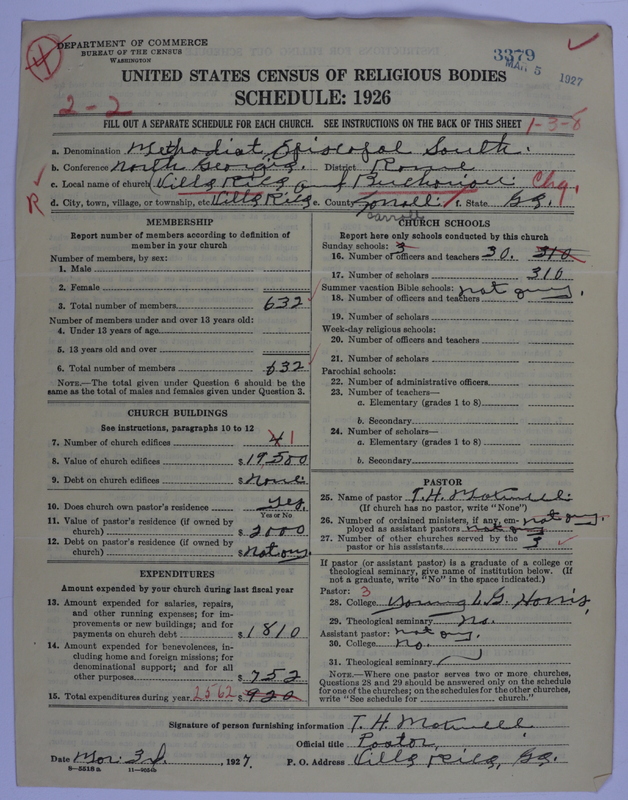 4
DEPARTMENT OF COMMERCE
BUREAU OF THE CENSUS
WASHINGTON
3379
MAR 5 1927
UNITED STATES CENSUS OF RELIGIOUS BODIES
SCHEDULE: 1926
2-2
FILL OUT A SEPARATE SCHEDULE FOR EACH CHURCH. SEE INSTRUCTIONS ON THE BACK OF THIS SHEET
1-3-8
a. Denomination Methodist Episcopal South.
b. Conference North Georgia. District Rome
c. Local name of church Villa Rica and Chg.
R
d. City, town, village, or township, etc. Villa Rica e. County Carroll f. State Ga.
Carroll
MEMBERSHIP
Report number of members according to definition of member in your church
Number of members, by sex:
1. Male
2. Female
3. Total number of members 632
Number of members under and over 13 years old:
4. Under 13 years of age
5. 13 years old and over
6. Total number of members 632
NOTE.—The total given under Question 6 should be the same as the total of males and females given under Question 3.
CHURCH BUILDINGS
See instructions, paragraphs 10 to 12
7. Number of church edifices 4 1
8. Value of church edifices $ 19,500
9. Debt on church edifices $ None
10. Does church own pastor's residence yes.
Yes or No
11. Value of pastor's residence (if owned by church) $ 2000
12. Debt on pastor's residence (if owned by church) $ not any
EXPENDITURES
Amount expended by your church during last fiscal year
13. Amount expended for salaries, repairs, and other running expenses; for improvements or new buildings; and for payments on church debt $ 1810
14. Amount expended for benevolences, including home and foreign missions; for denominational support; and for all other purposes $ 752
15. Total expenditures during year 2562 $ 920
CHURCH SCHOOLS
Report here only schools conducted by this church
Sunday schools: 3
16. Number of officers and teachers 30. 310
17. Number of scholars 310
Summer vacation Bible schools: not any.
18. Number of officers and teachers
19. Number of scholars
Week-day religious schools:
20. Number of officers and teachers
21. Number of scholars
Parochial schools:
22. Number of administrative officers
23. Number of teachers—
a. Elementary (grades 1 to 8)
b. Secondary
24. Number of scholars—
a. Elementary (grades 1 to 8)
b. Secondary
PASTOR
25. Name of pastor T. H.
(If church has no pastor, write "None")
26. Number of ordained ministers, if any, employed as assistant pastors not any. not any
27. Number of other churches served by the pastor or his assistants 3
If pastor (or assistant pastor) is a graduate of a college or theological seminary, give name of institution below. (If not a graduate, write "No" in the space indicated.)
Pastor: 3
28. College Young L. G. Harris
29. Theological seminary No.
Assistant pastor: not any.
30. College No.
31. Theological seminary
NOTE.—Where one pastor serves two or more churches, Questions 28 and 29 should be answered only on the schedule for one of the churches; on the schedules for the other churches, write "See schedule for church."
Signature of person furnishing information T. H.
Official title Pastor,
Date Mar. 3d, 1927. P. O. Address Villa Rica, Ga.
8-5518a 11-9054b